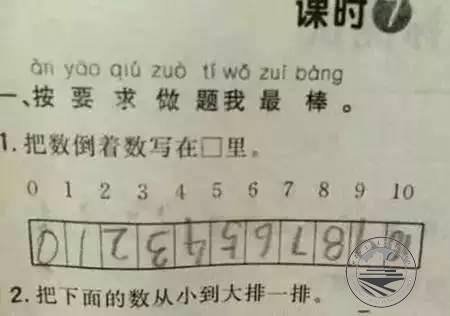 课时7
àn yāo qiú zuò tí wǒ zuì bàng
一、按 要 求 做 题 我 最 棒 。
1. 把数倒着数写在□里。
0 1 2 3 4 5 6 7 8 9 10
0 1 2 3 4 5 6 7 8 9 10
2. 把下面的数从小到大排一排。